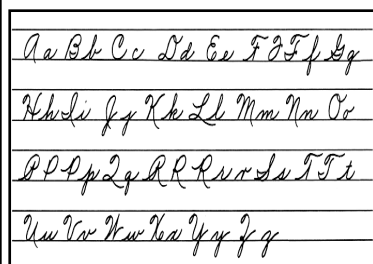 Aa Bb Cc Dd Ee F F F f Gg
Hh Ii Jj Kk Ll Mm Nn Oo
P P P p Qq R R R r r Ss T T t
Uu Vv Ww Xx Yy Zz